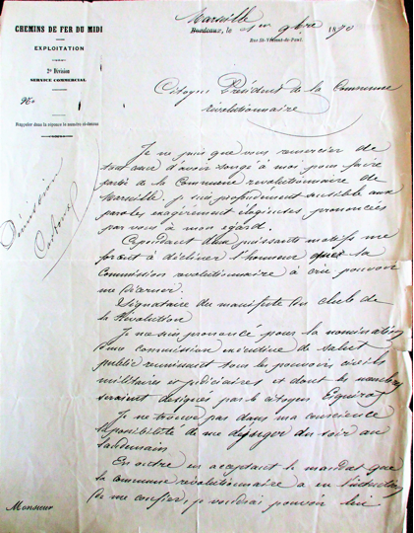 CHEMINS DE FER DU MIDI
EXPLOITATION
2e Division
SERVICE COMMERCIAL
No
Rappeler dans la réponse le numéro ci-dessus
Démission
Marseille
Bordeaux, le 1er 9bre 1870
Rue St-Vincent-de-Paul.
Citoyen Président de la Commune
révolutionnaire
Je ne puis que vous remercier de
tout cœur d'avoir songé à moi pour faire
partie de la Commune révolutionnaire de
Marseille, je suis profondément sensible aux
paroles exagérément élogieuses prononcées
par vous à mon égard.
Cependant deux puissants motifs me
forcent à décliner l'honneur que la
Commission révolutionnaire a cru pouvoir
me décerner.
Signataire du manifeste du club de
la Révolution
Je me suis prononcé pour la nomination
d'une commission exécutive de salut
public réunissant tous les pouvoirs civils
militaires et judiciaires et dont les membres
seraient désignés par le citoyen Esquiros
Je ne trouve pas dans ma conscience
la possibilité de me déjuger du soir au
lendemain
En outre en acceptant le mandat que
la commune révolutionnaire a eu l'intention
de me confier, je voudrais pouvoir lui
Monsieur